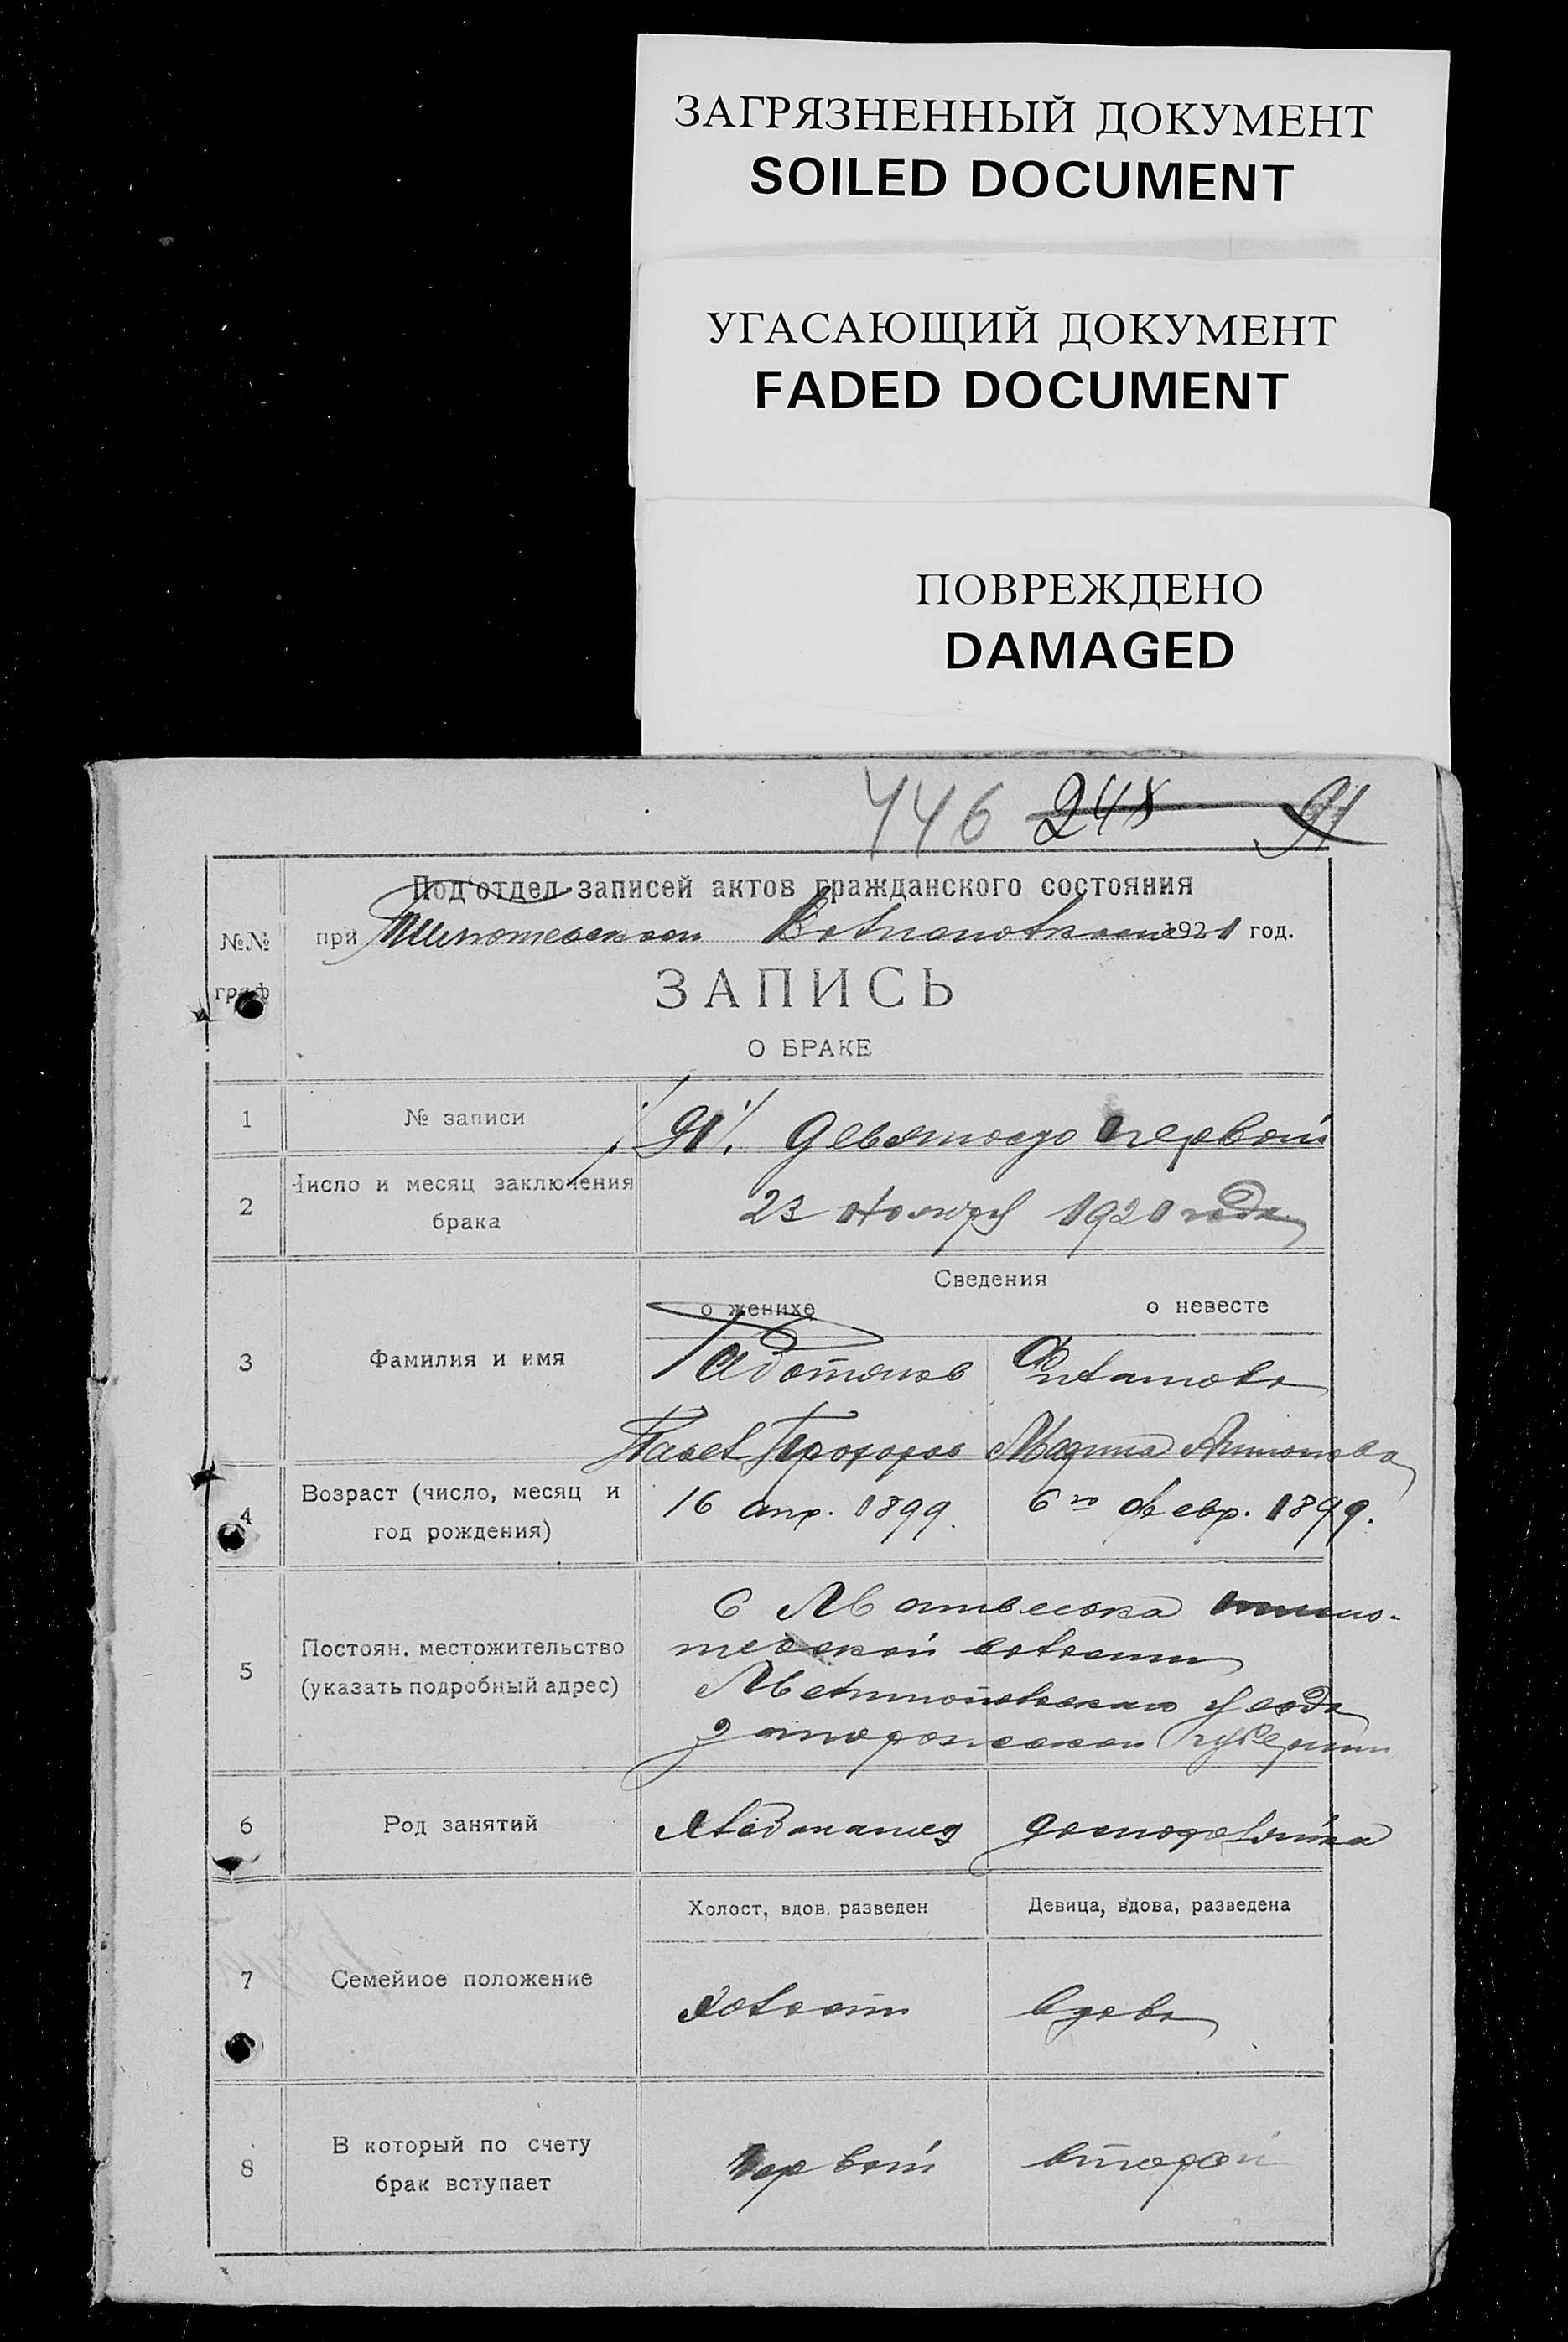 ЗАГРЯЗНЕННЫЙ ДОКУМЕНТ
SOILED DOCUMENT
УГАСАЮЩИЙ ДОКУМЕНТ
FADED DOCUMENT
ПОВРЕЖДЕНО
DAMAGED
446 248 91
Под'отдел записей актов гражданского состояния
№№ граф
при 1921 год.
ЗАПИСЬ
О БРАКЕ
1 № записи 91 Девяносто первый
2 Число и месяц заключения брака 23 Ноября 1921 года
Сведения
о женихе о невесте
3 Фамилия и имя
Павел Прохоров Марина
4 Возраст (число, месяц и год рождения) 16 апр. 1899. 6го февр. 1899.
5 Постоян. местожительство (указать подробный адрес)
С Матвеевка
волости
уезда
Запорожской губернии
6 Род занятий Хлебопашец домохозяйка
Холост, вдов. разведен Девица, вдова, разведена
7 Семейное положение Холост вдова
8 В который по счету брак вступает Первый второй